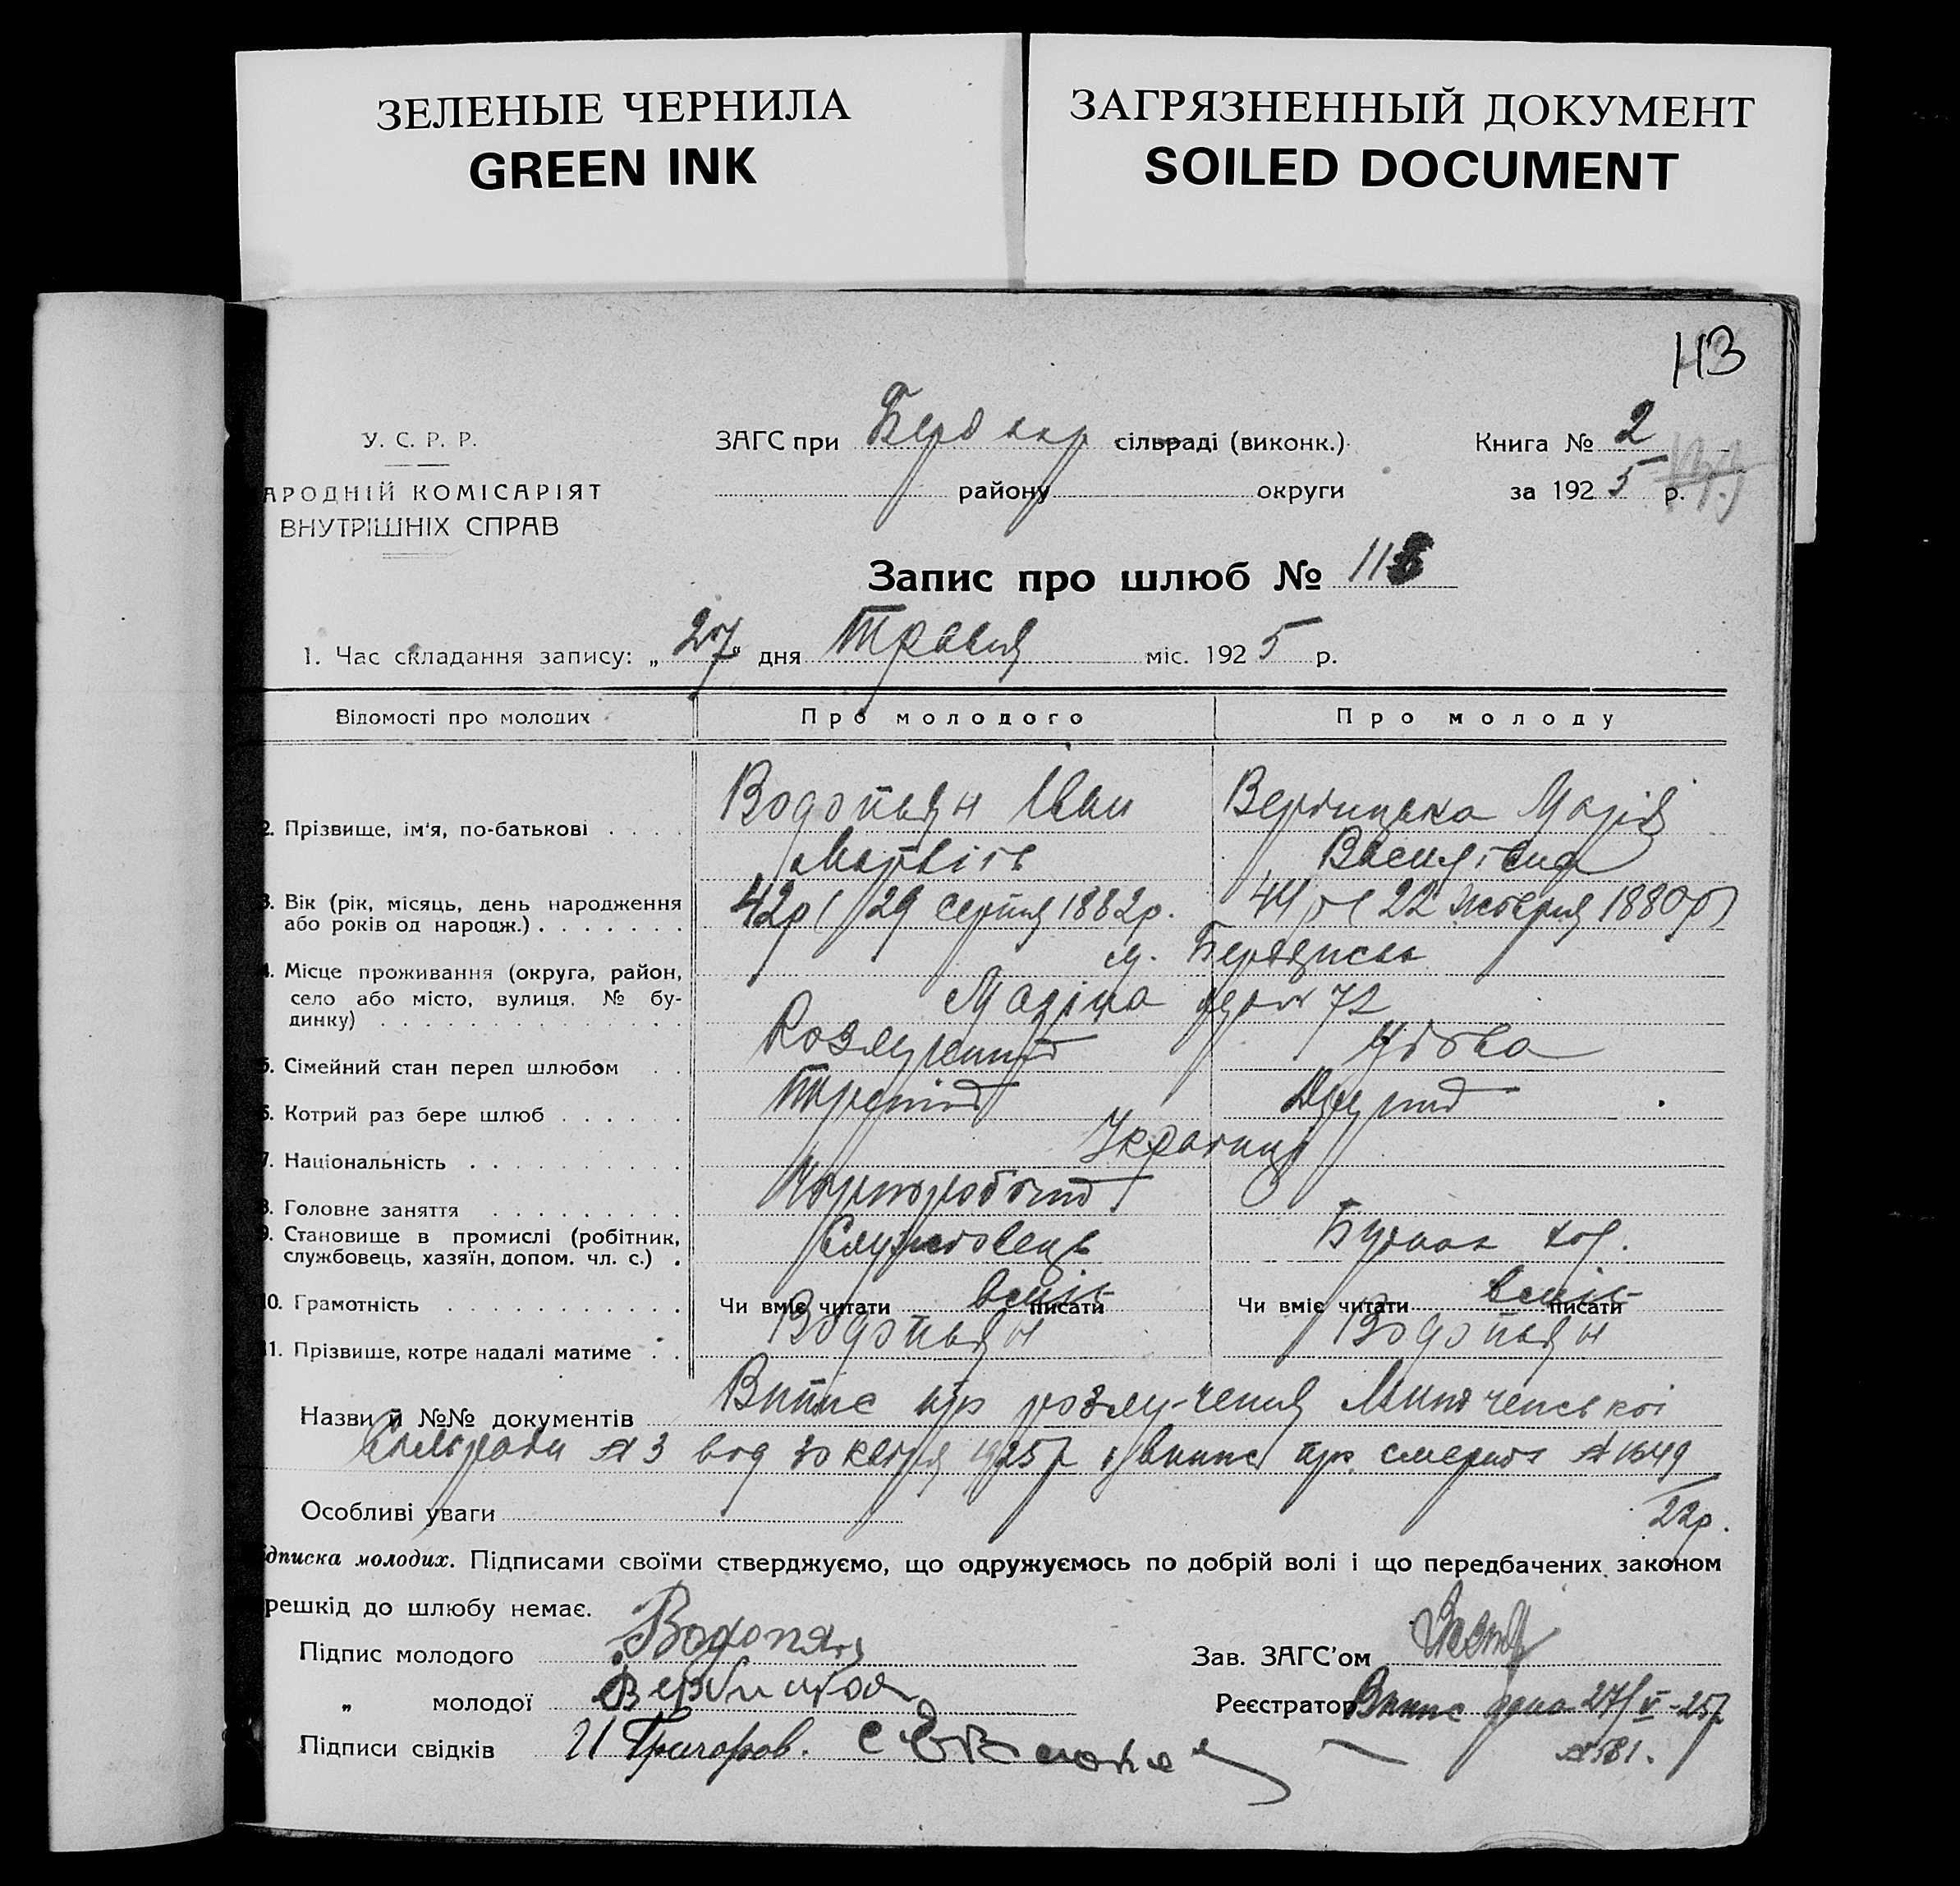 ЗЕЛЕНЫЕ ЧЕРНИЛА
GREEN INK
ЗАГРЯЗНЕННЫЙ ДОКУМЕНТ
SOILED DOCUMENT
113
У. С. Р. Р.
АРОДНІЙ КОМІСАРІЯТ
ВНУТРІШНІХ СПРАВ
ЗАГС при Берд окр сільраді (виконк.)
району округи
Книга № 2
за 1925 р.
Запис про шлюб № 113
1. Час складання запису: „27" дня Травня міс. 1925 р.
Відомості про молодих Про молодого Про молоду
2. Прізвище, ім'я, по-батькові Водопьян Іван Вербицька Марія
Матвіїв Василівна
3. Вік (рік, місяць, день народження 42р ( 29 серпня 1882р. 44 р ( 22 жовтня 1880р)
або років од народж.)
м. Бердичев
4. Місце проживання (округа, район,
село або місто, вулиця. № бу-
динку)
72
5. Сімейний стан перед шлюбом Розлучений Удова
6. Котрий раз бере шлюб Третій Другий
7. Національність Українці
8. Головне заняття Чорноробочий
9. Становище в промислі (робітник, Службовець
службовець, хазяїн, допом. чл. с.)
10. Грамотність Чи вміє читати вміє писати Чи вміє читати вміє писати
11. Прізвище, котре надалі матиме Водопьян Водопьян
Назви й №№ документів Випис про розлучення
Сільради № 3 від 30 квітня 1925р і випис про смерть № 1649
22р.
Особливі уваги
ідписка молодих. Підписами своїми стверджуємо, що одружуємось по добрій волі і що передбачених законом
решкід до шлюбу немає.
Підпис молодого Водопян
„ молодої Вербицкая
Підписи свідків И Григоров.
Зав. ЗАГС'ом
Реєстратор Випис дана 27/V-25р
№ 581.